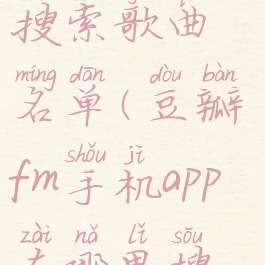 搜索歌曲
míng dān dòu bàn
名单(豆瓣
shǒu jī
fm手机app
zài nǎ lǐ sōu
在哪里搜